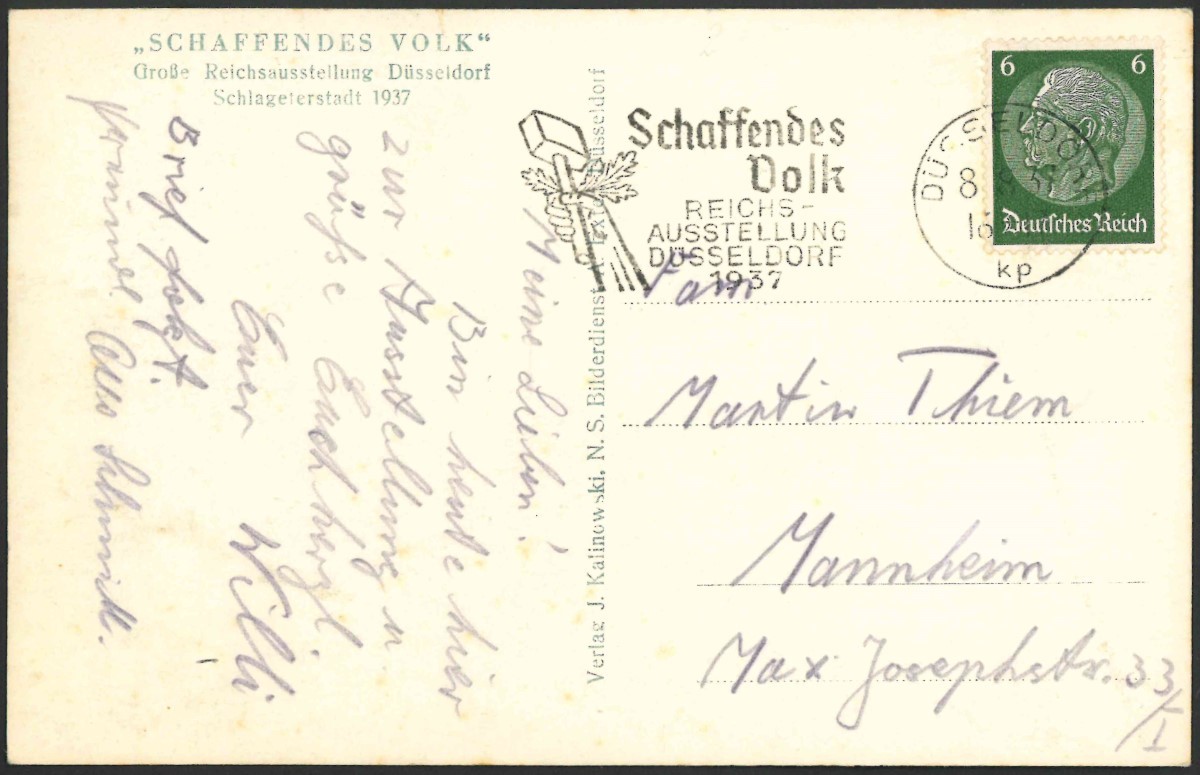 „SCHAFFENDES VOLK“
Große Reichsausstellung Düsseldorf
Schlageterstadt 1937
Meine Lieben!
Bin heute hier
zur Ausstellung u
grüße Euch herzl.
Euer Willi
Brief folgt.
Otto Schmidt.
Verlag J. Kalinowski, N. S. Bilderdienst Düsseldorf
Schaffendes
Volk
REICHS-
AUSSTELLUNG
DÜSSELDORF
1937
DÜSSELDORF
8
16
kp
6 6
Deutsches Reich
Fam
Martin Thiem
Mannheim
Max Josephstr. 33/I